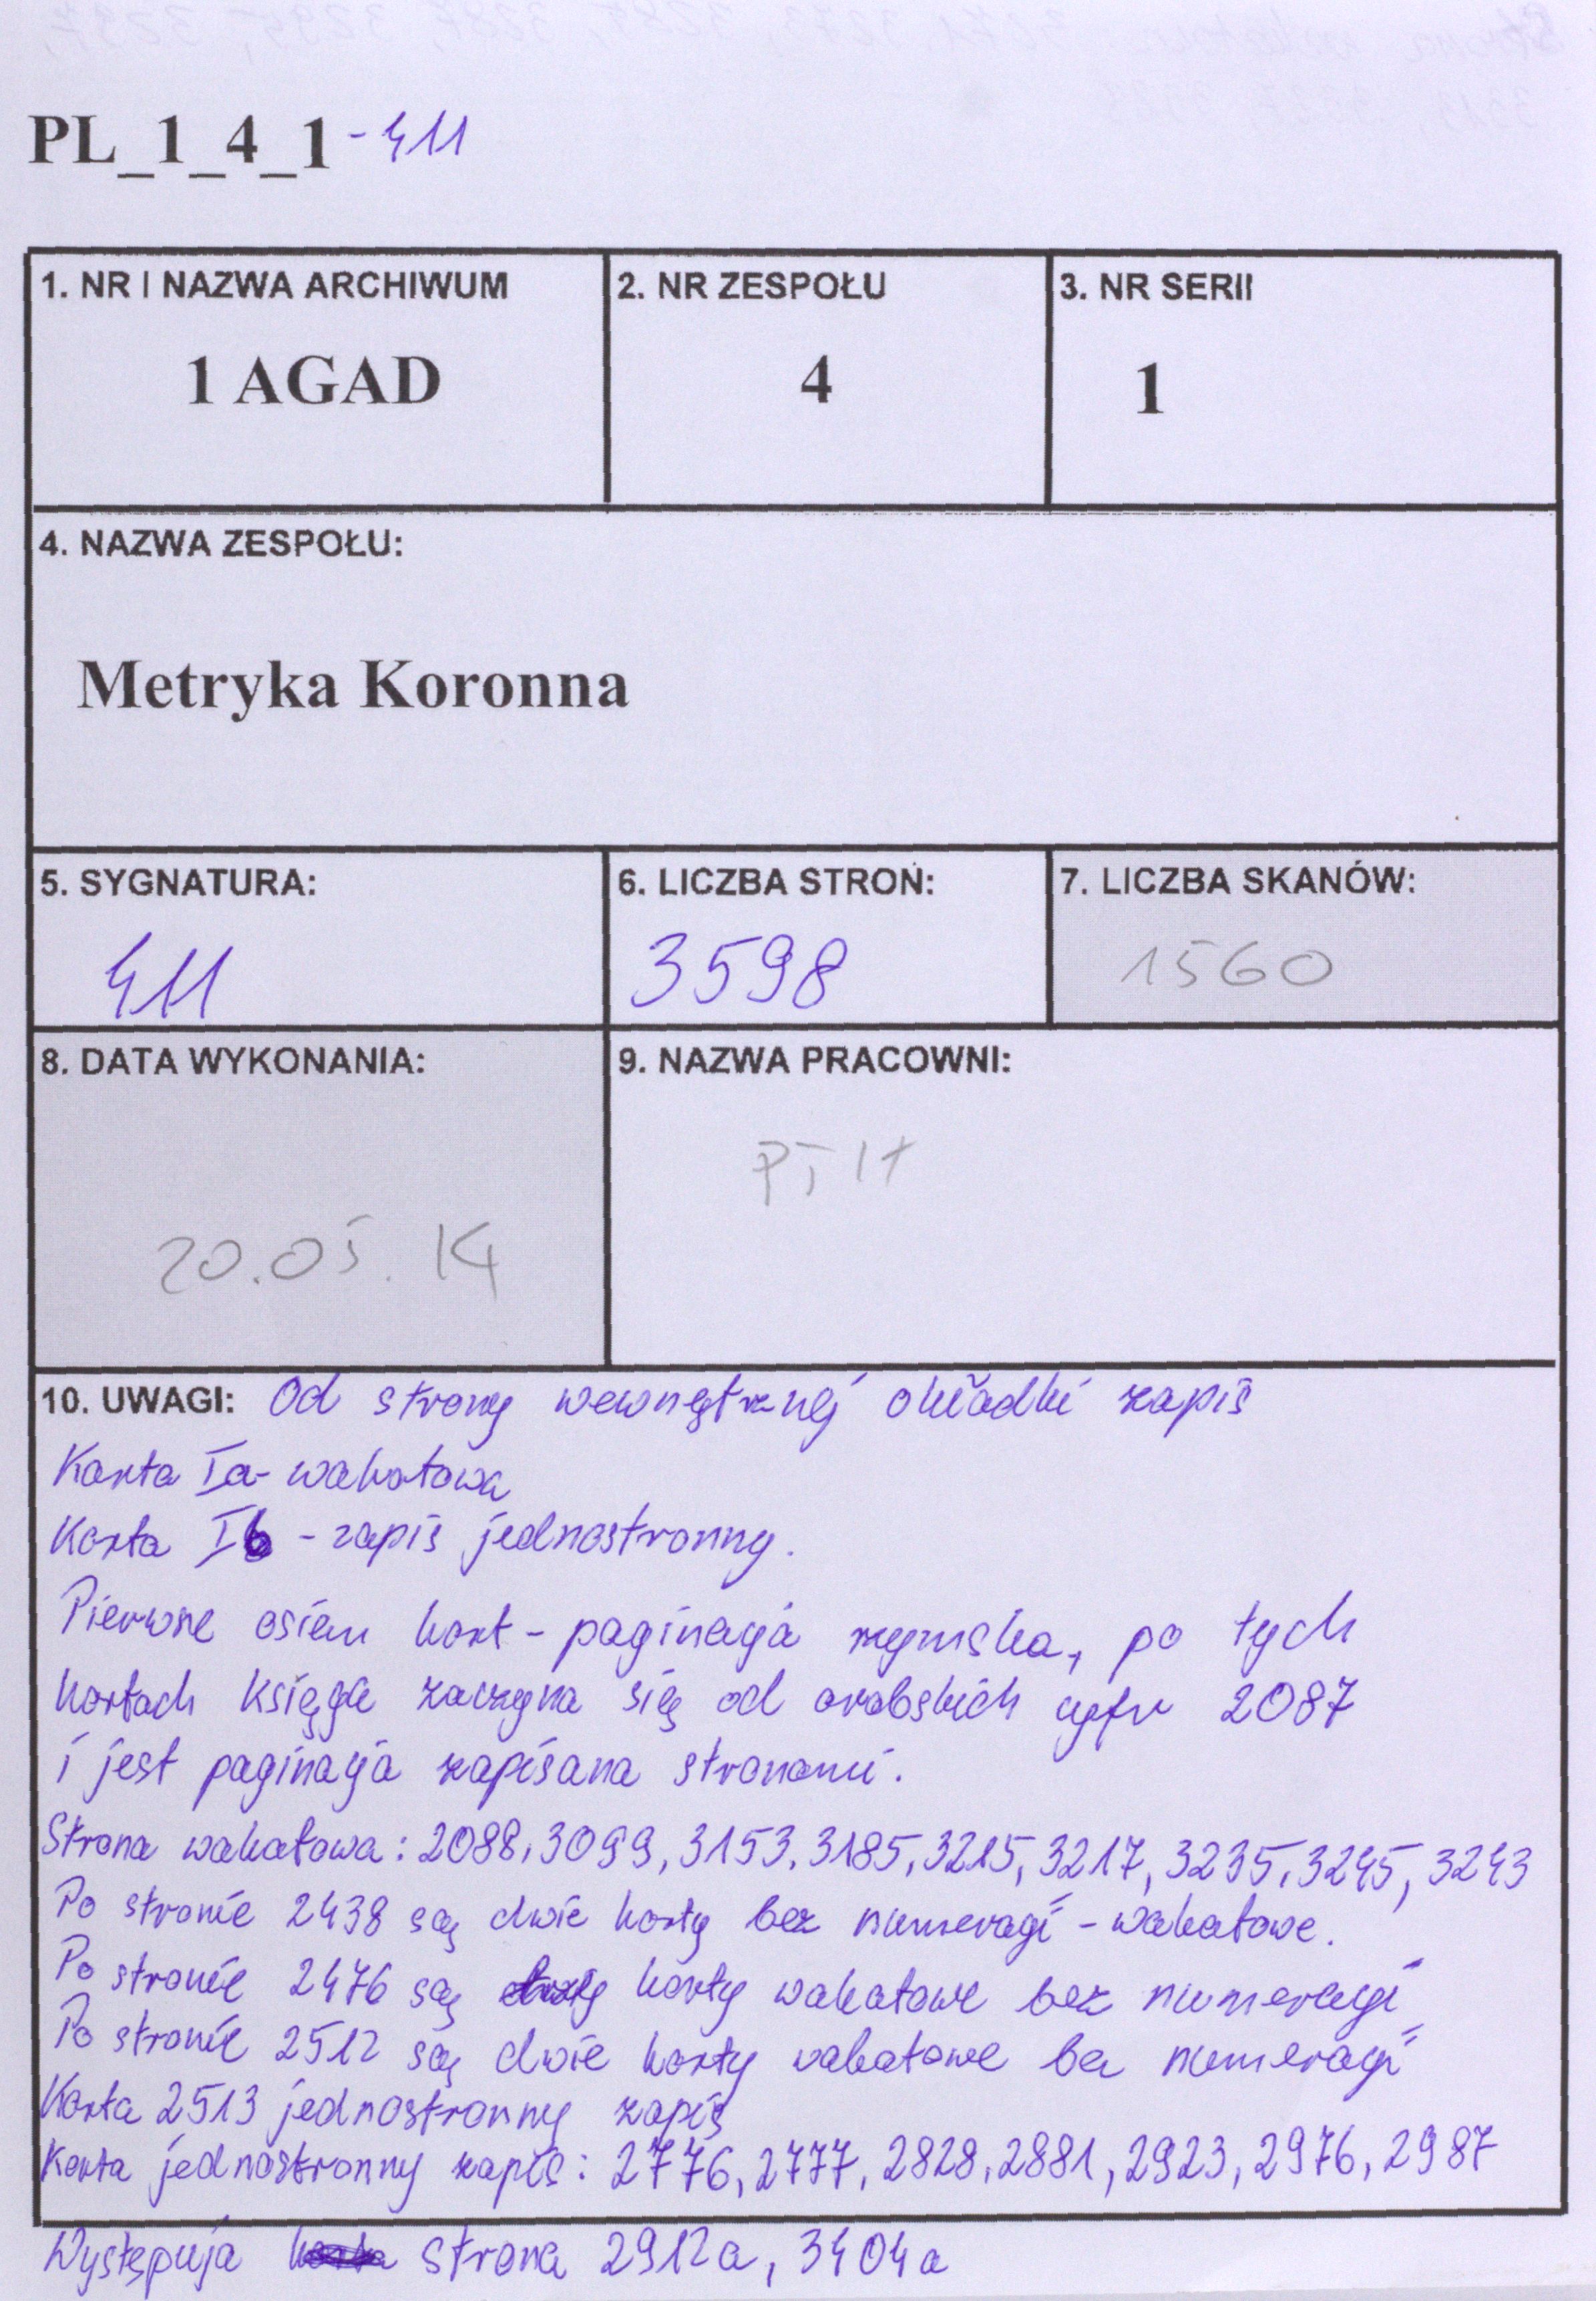 PL_1_4_1-411
1. NR I NAZWA ARCHIWUM
1 AGAD
2. NR ZESPOŁU
4
3. NR SERII
1
4. NAZWA ZESPOŁU:
Metryka Koronna
5. SYGNATURA:
411
6. LICZBA STRON:
3598
7. LICZBA SKANÓW:
1560
8. DATA WYKONANIA:
20.05.14
9. NAZWA PRACOWNI:
10. UWAGI: Od strony wewnętrznej okładki zapis
Karta Ia - wakatowa
Karta Ib - zapis jednostronny.
Pierwsze osiem kart - paginacja rzymska, po tych
kartach księga zaczyna się od arabskich cyfr 2087
i jest paginacja zapisana stronami.
Strona wakatowa: 2088, 3099, 3153, 3185, 3215, 3217, 3235, 3245, 3243
Po stronie 2438 są dwie karty bez numeracji - wakatowe.
Po stronie 2476 są karty wakatowe bez numeracji
Po stronie 2512 są dwie karty wakatowe bez numeracji
Karta 2513 jednostronny zapis
Karta jednostronny zapis: 2776, 2777, 2828, 2881, 2923, 2976, 2987
Występuja strona 2912a, 3404a